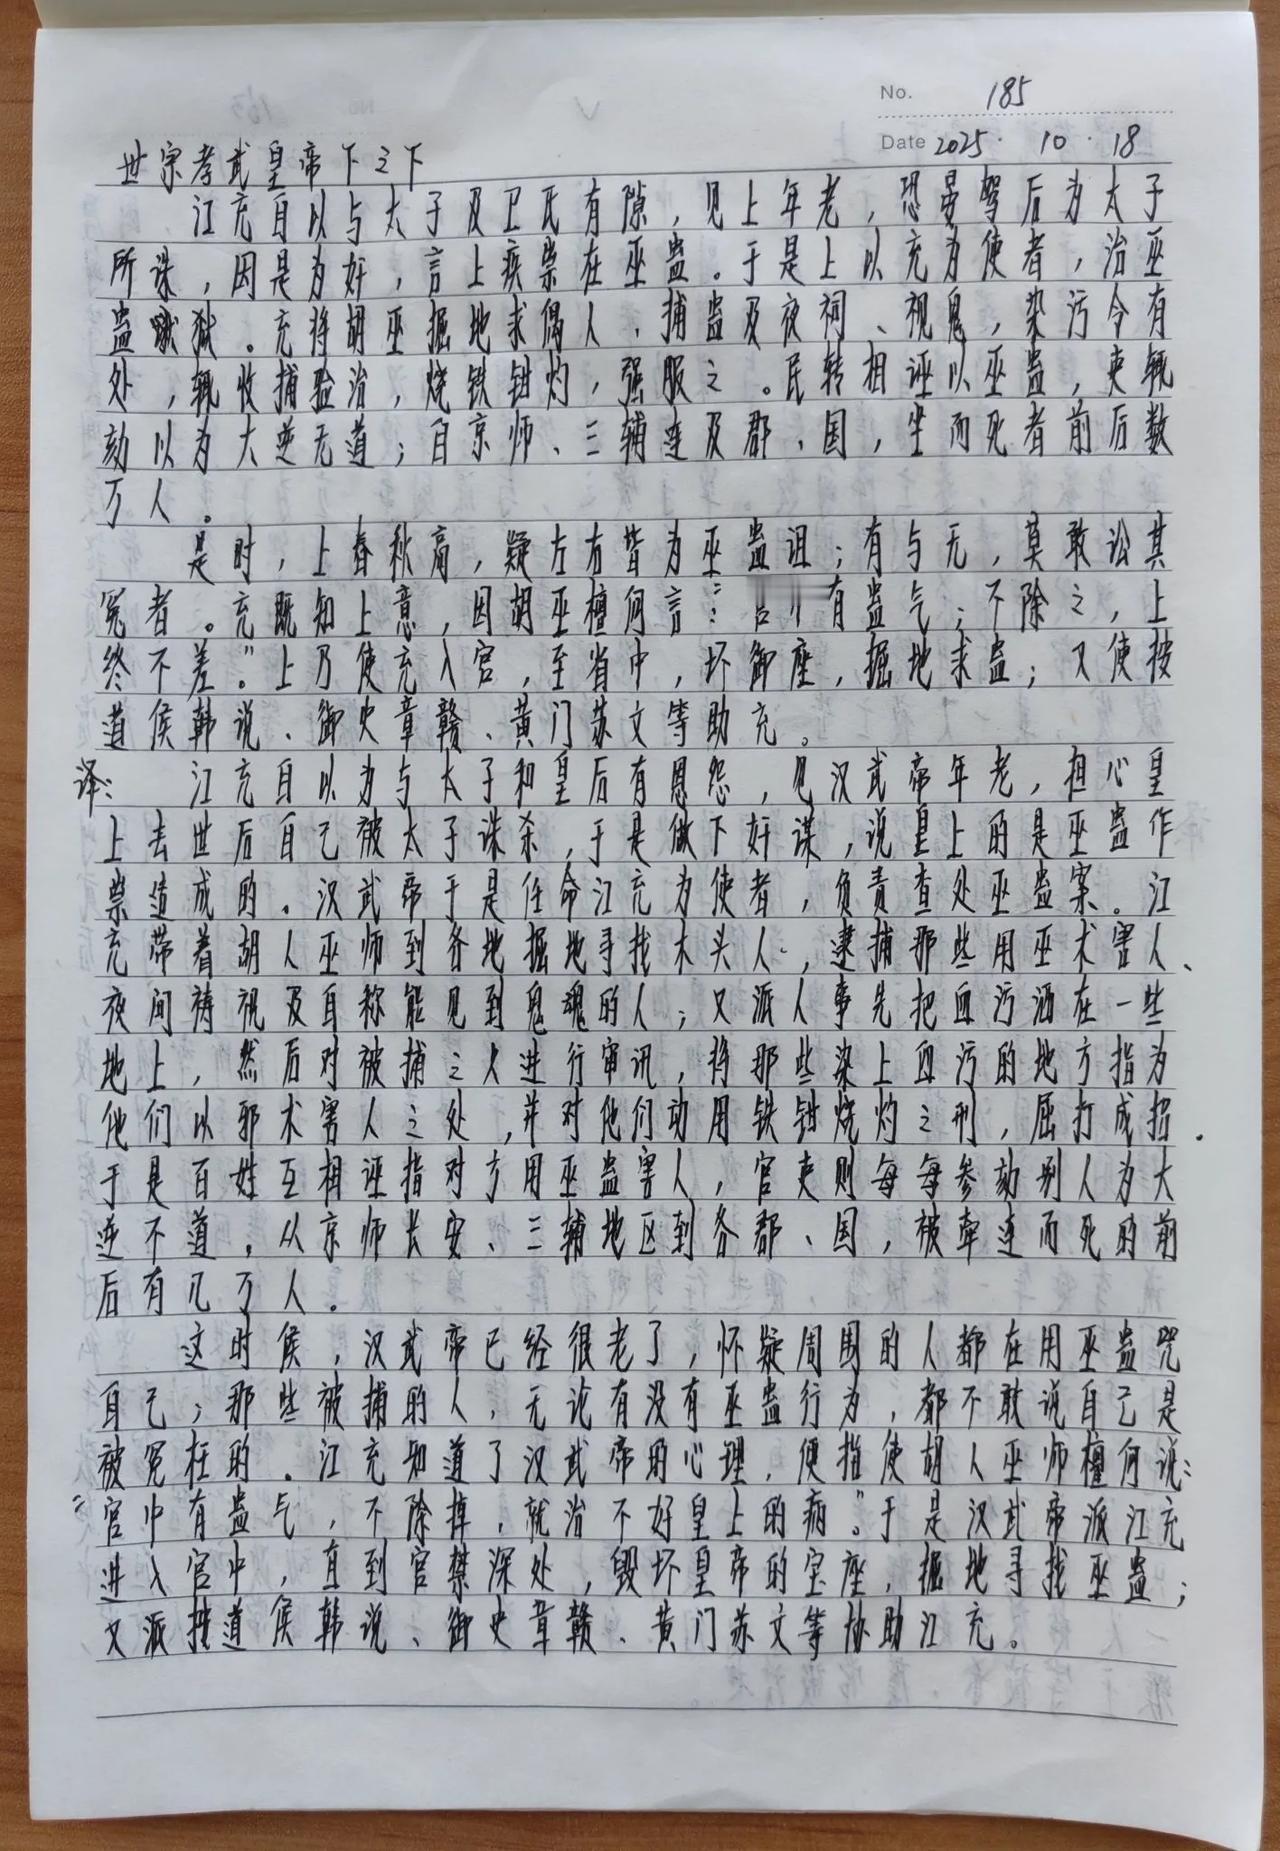 No. 185
Date 2025 · 10 · 18
世宗孝武皇帝下之下
江充自以与太子及卫氏有隙，见上年老，恐晏驾后为太子
所诛，因是为奸，言上疾祟在巫蛊。于是上以充为使者，治巫
蛊狱。充将胡巫掘地求偶人，捕蛊及夜祠、视鬼，染污令有
处，辄收捕验治，烧铁钳灼，强服之。民转相诬以巫蛊，吏辄
劾以为大逆无道；自京师、三辅连及郡、国，坐而死者前后数
万人。
是时，上春秋高，疑左右皆为巫蛊诅；有与无，莫敢讼其
冤者。充既知上意，因胡巫檀何言：“宫 有蛊气；不除之，上
终不差。”上乃使充入宫，至省中，坏御座，掘地求蛊；又使按
道侯韩说、御史章赣、黄门苏文等助充。
译： 江充自以为与太子和皇后有恩怨，见汉武帝年老，担心皇
上去世后自己被太子诛杀，于是做下奸谋，说皇上的是巫蛊作
祟造成的。汉武帝于是任命江充为使者，负责查处巫蛊案。江
充带着胡人巫师到各地掘地寻找木头人，逮捕那些用巫术害人、
夜间祷祝及自称能见到鬼魂的人；又派人事先把血污洒在一些
地上，然后对被捕之人进行审讯，将那些染上血污的地方指为
他们以邪术害人之处，并对他们动用铁钳烧灼之刑，屈打成招．
于是百姓互相诬指对方用巫蛊害人，官吏则每每参劾别人为大
逆不道，从京师长安、三辅地区到各郡、国，被牵连而死的前
后有几万人．
这时侯，汉武帝已经很老了，怀疑周围的人都在用巫蛊咒
自己；那些被捕的人，无论有没有巫蛊行为，都不敢说自己是
被冤枉的．江充知道了汉武帝的心理，便指使胡人巫师檀何说：
“宫中有蛊气，不除掉，就治不好皇上的病。”于是汉武帝派江充
进入宫中，直到宫禁深处，毁坏皇帝的宝座，掘地寻找巫蛊；
又派按道侯韩说、御史章赣、黄门苏文等协助江充。